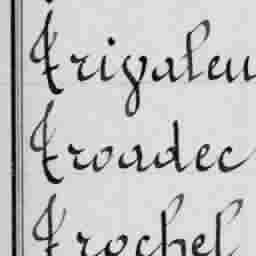 Trigaleu
Troadec
Trochel